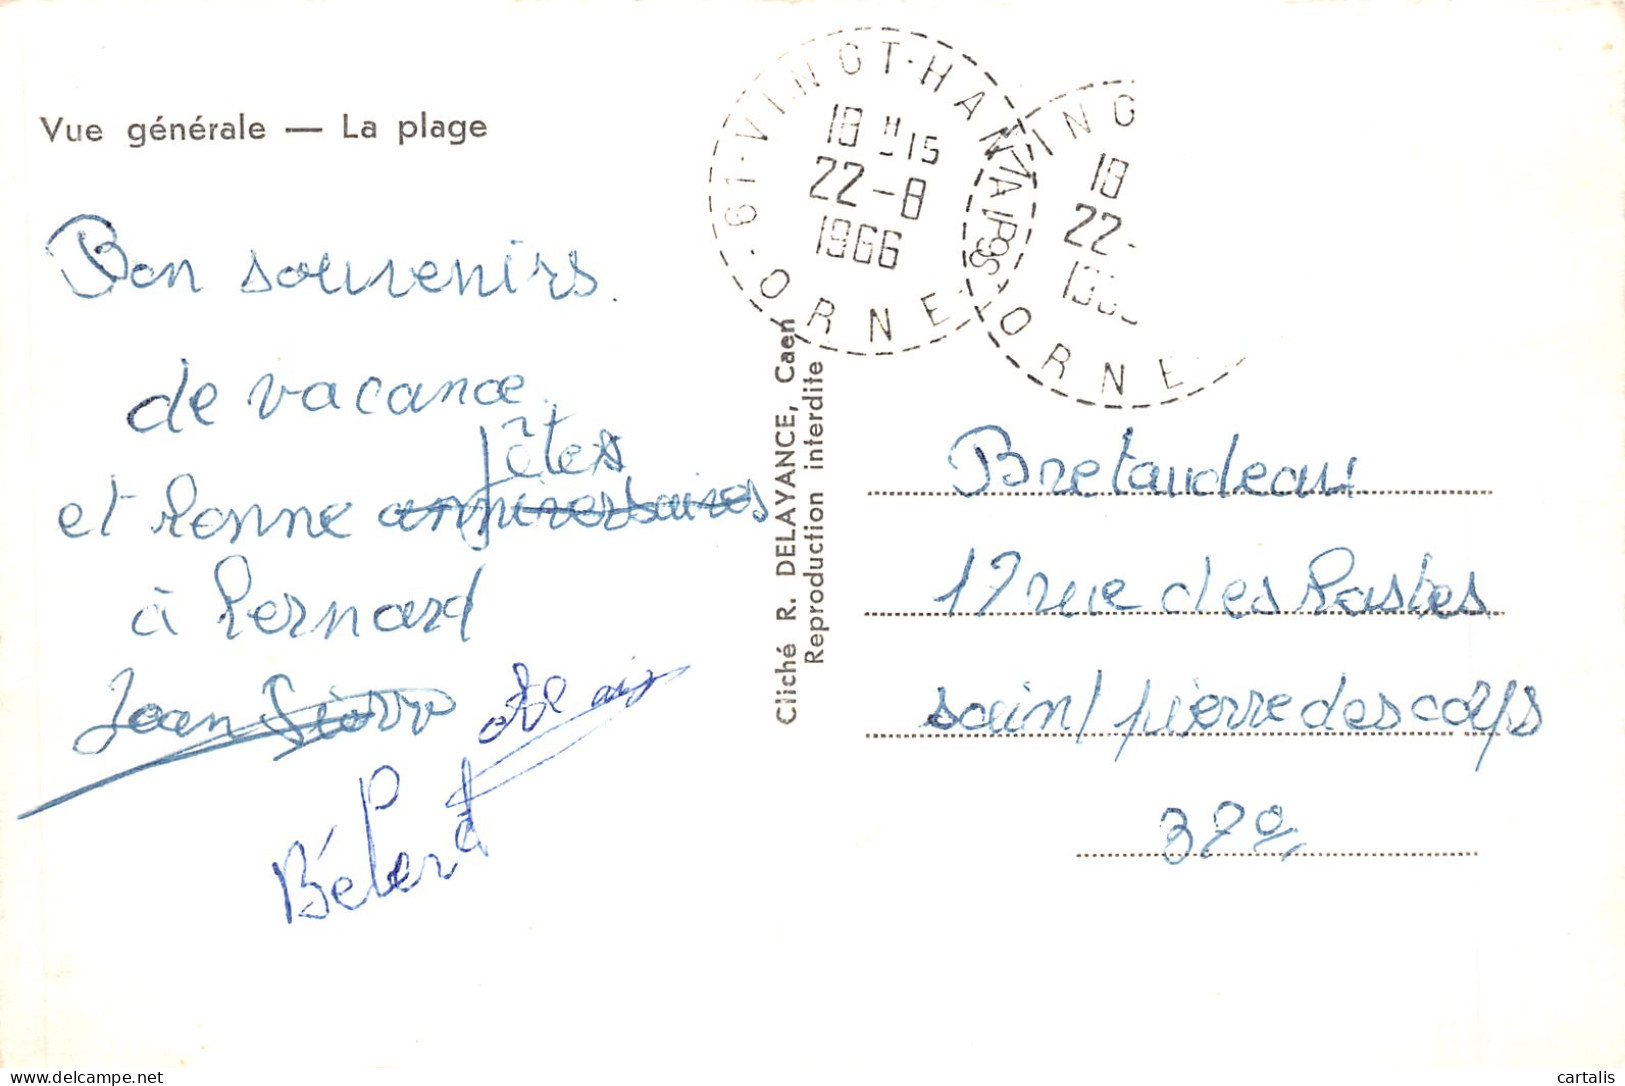 Vue générale — La plage
Bon souvenirs.
de vacance
et bonne anniversaires fêtes
à Bernard
Jean Pierre
61-VINGT-HANAPS - ORNE
18 H 15
22-8
1966
VING
18
22-
ORNE
Cliché R. DELAYANCE, Caen
Reproduction interdite
Bretaudeau
17 rue des Bastes
saint pierre des corps
37
delcampe.net
cartalis